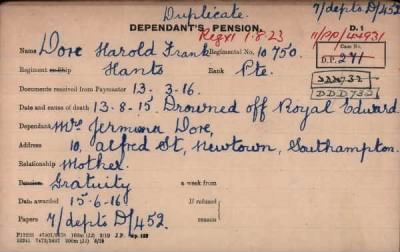 Duplicate. 7/depts D/452
DEPENDANT'S PENSION. D.1
Regs 1.8.23 11/DP/44931
Name Dove Harold Frank Regimental No. 10750. Case No.
Regiment or Ship Hants Rank Pte. D.P. 241
Documents received from Paymaster 13-3-16. DDD732
Date and cause of death 13-8-15 Drowned off Royal Edward DDD732
Dependant Mrs Jermima Dove,
Address 10, Alfred St, Newtown, Southampton.
Relationship Mother.
Pension Gratuity a week from
Date awarded 15-6-16 If refused
Papers 7/depts D/452. reason